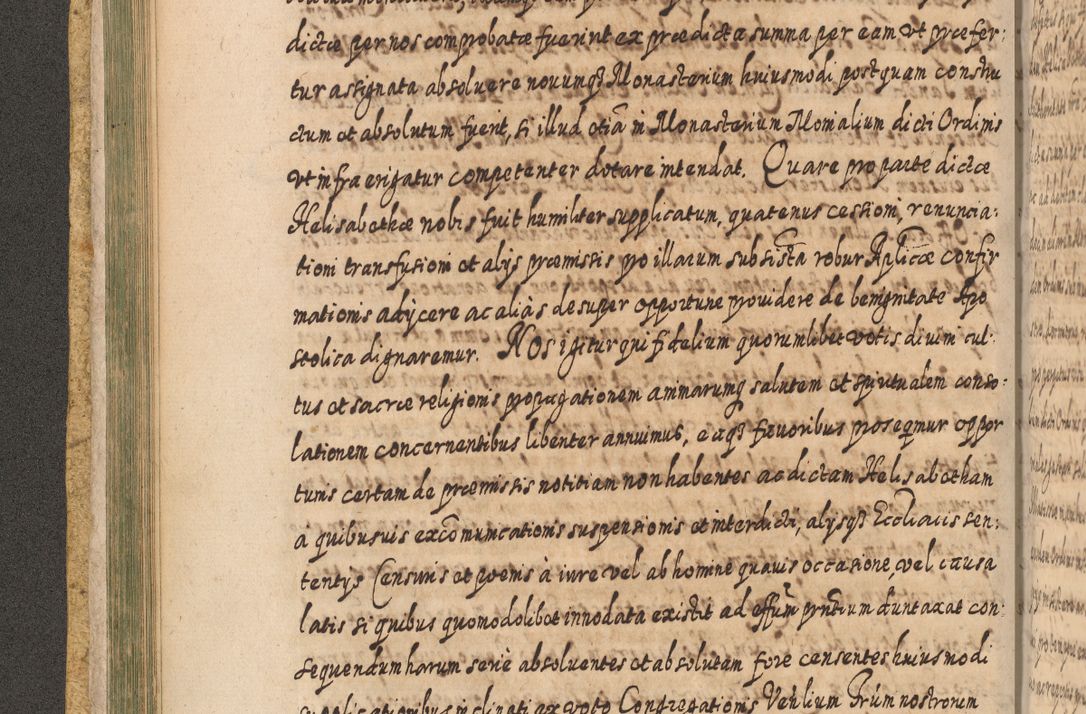 dictæ per nos comprobatæ fuerint ex prædicta summa per eam vt præfer:
tur assignata absoluere nouumq3 Monasterium huiusmodi postquam constru
ctum et absolutum fuerit, si illud etiā in Monasterium Monialium dicti Ordinis
vt infra erigatur competenter dotare intendat. Quare pro parte dictæ
Helisabethæ nobis fuit humiliter supplicatum, quatenus cessioni, renuncia:
tioni transfusioni et alijs præmissis pro illarum subsistā robur Aplicæ confir
mationis adijcere ac aliàs desuper opportune prouidere de benignitate Apo
stolica dignaremur. Nos igitur qui fidelium quorumlibet votis diuini cul:
tus et sacræ religionis propagationem animarumq salutem et spiritualem conso:
lationem concernentibus libenter annuimus, eaq3 fauoribus prosequimur oppor
tunis certam de præmissis notitiam non habentes ac dictam Helisabetham
à quibusuis excōmunicationis suspensionis et interdicti, alijsq3 Ecclīacis sen:
tentijs Censuris et poenis à iure vel ab homine quauis occasione, vel causa
latis si quibus quomodolibet innodata existit ad effūm prntium duntaxat con:
sequendum harum serie absoluentes et absolutam fore censentes huiusmodi
supplicationibus inclinati ex voto Congregationis Veñlium Frūm nostrorum